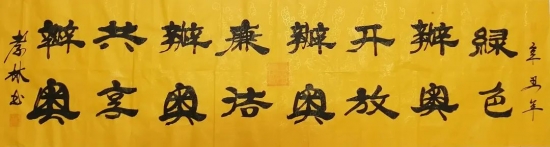 辛丑年
緑色
辦奥
开放
辦奥
廉洁
辦奥
共享
辦奥
孝林书